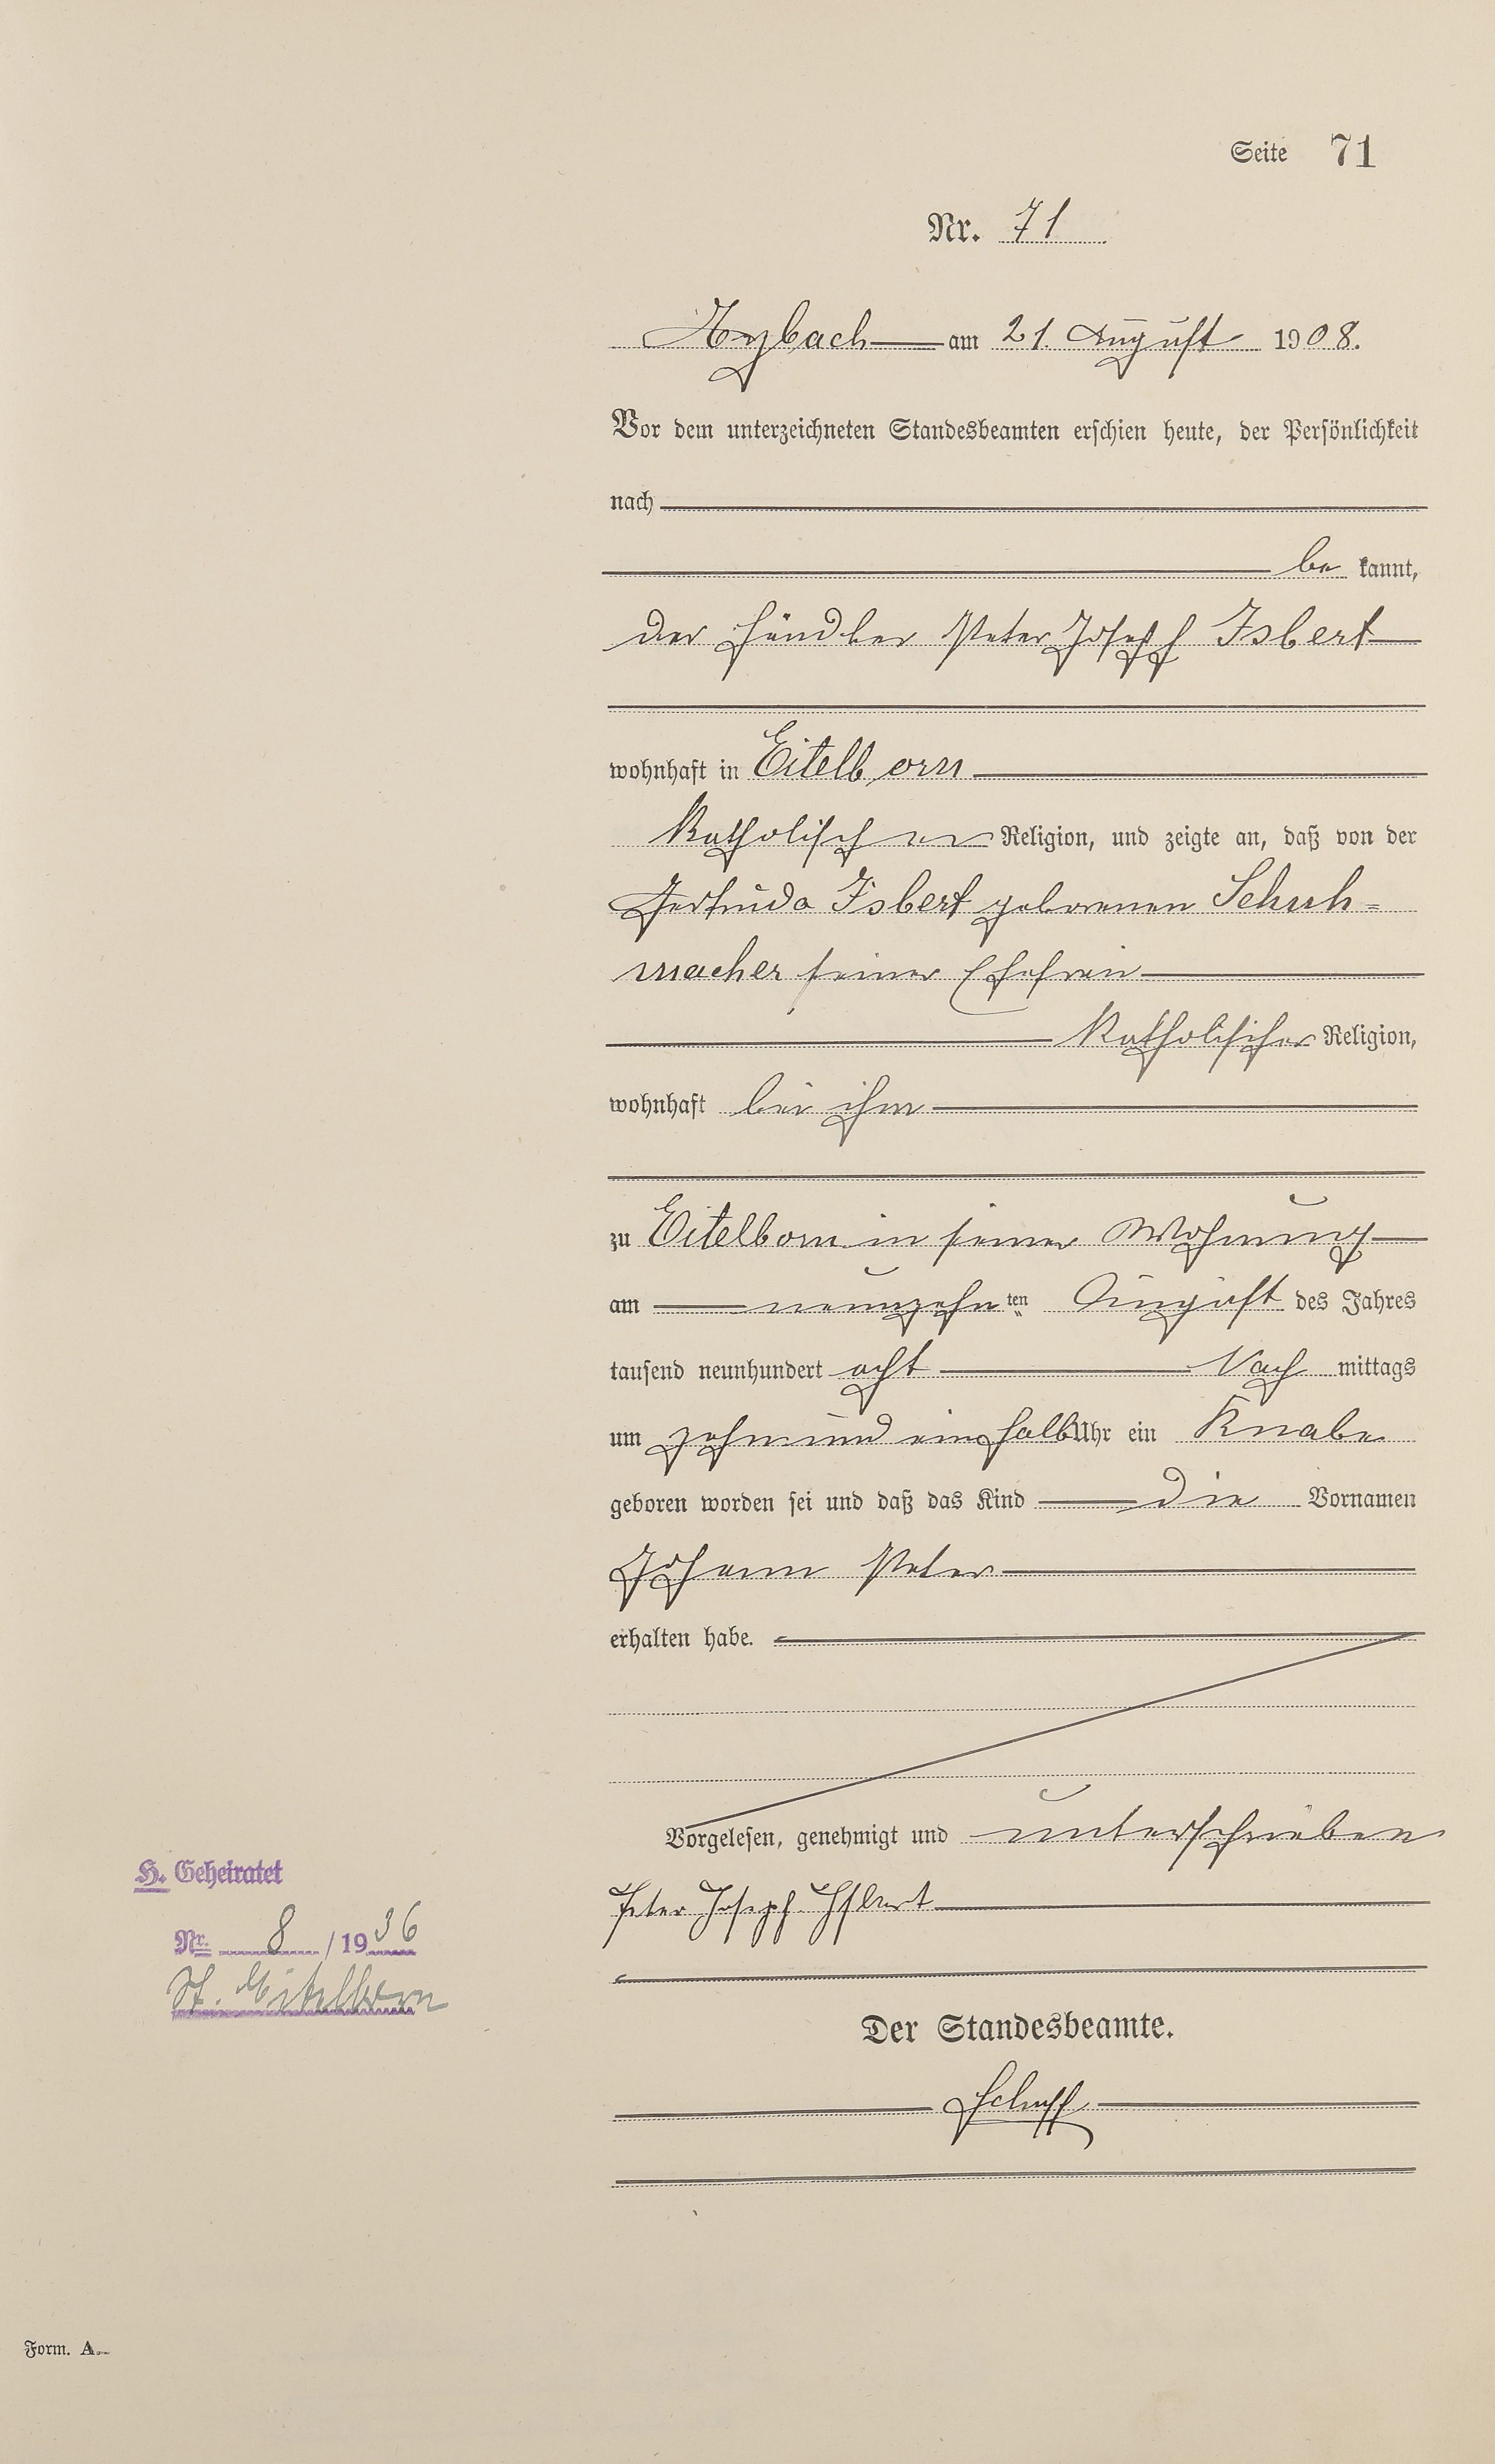 Seite 71
Nr. 71
Arzbach am 21. August 1908.
Vor dem unterzeichneten Standesbeamten erschien heute, der Persönlichkeit
nach
be kannt,
der Händler Peter Joseph Isbert
wohnhaft in Eitelborn
Katholischer Religion, und zeigte an, daß von der
Gertruda Isbert geborenen Schuh=
macher seiner Ehefrau
Katholischer Religion,
wohnhaft bei ihm
zu Eitelborn in seiner Wohnung
am neunzehnten August des Jahres
tausend neunhundert acht Nach mittags
um zehn und einhalb Uhr ein Knabe
geboren worden sei und daß das Kind die Vornamen
Johann Peter
erhalten habe.
Vorgelesen, genehmigt und unterschrieben
Peter Joseph Isbert
H. Geheiratet
Nr. 8 / 1936
St. Eitelborn
Der Standesbeamte.
Form. A.